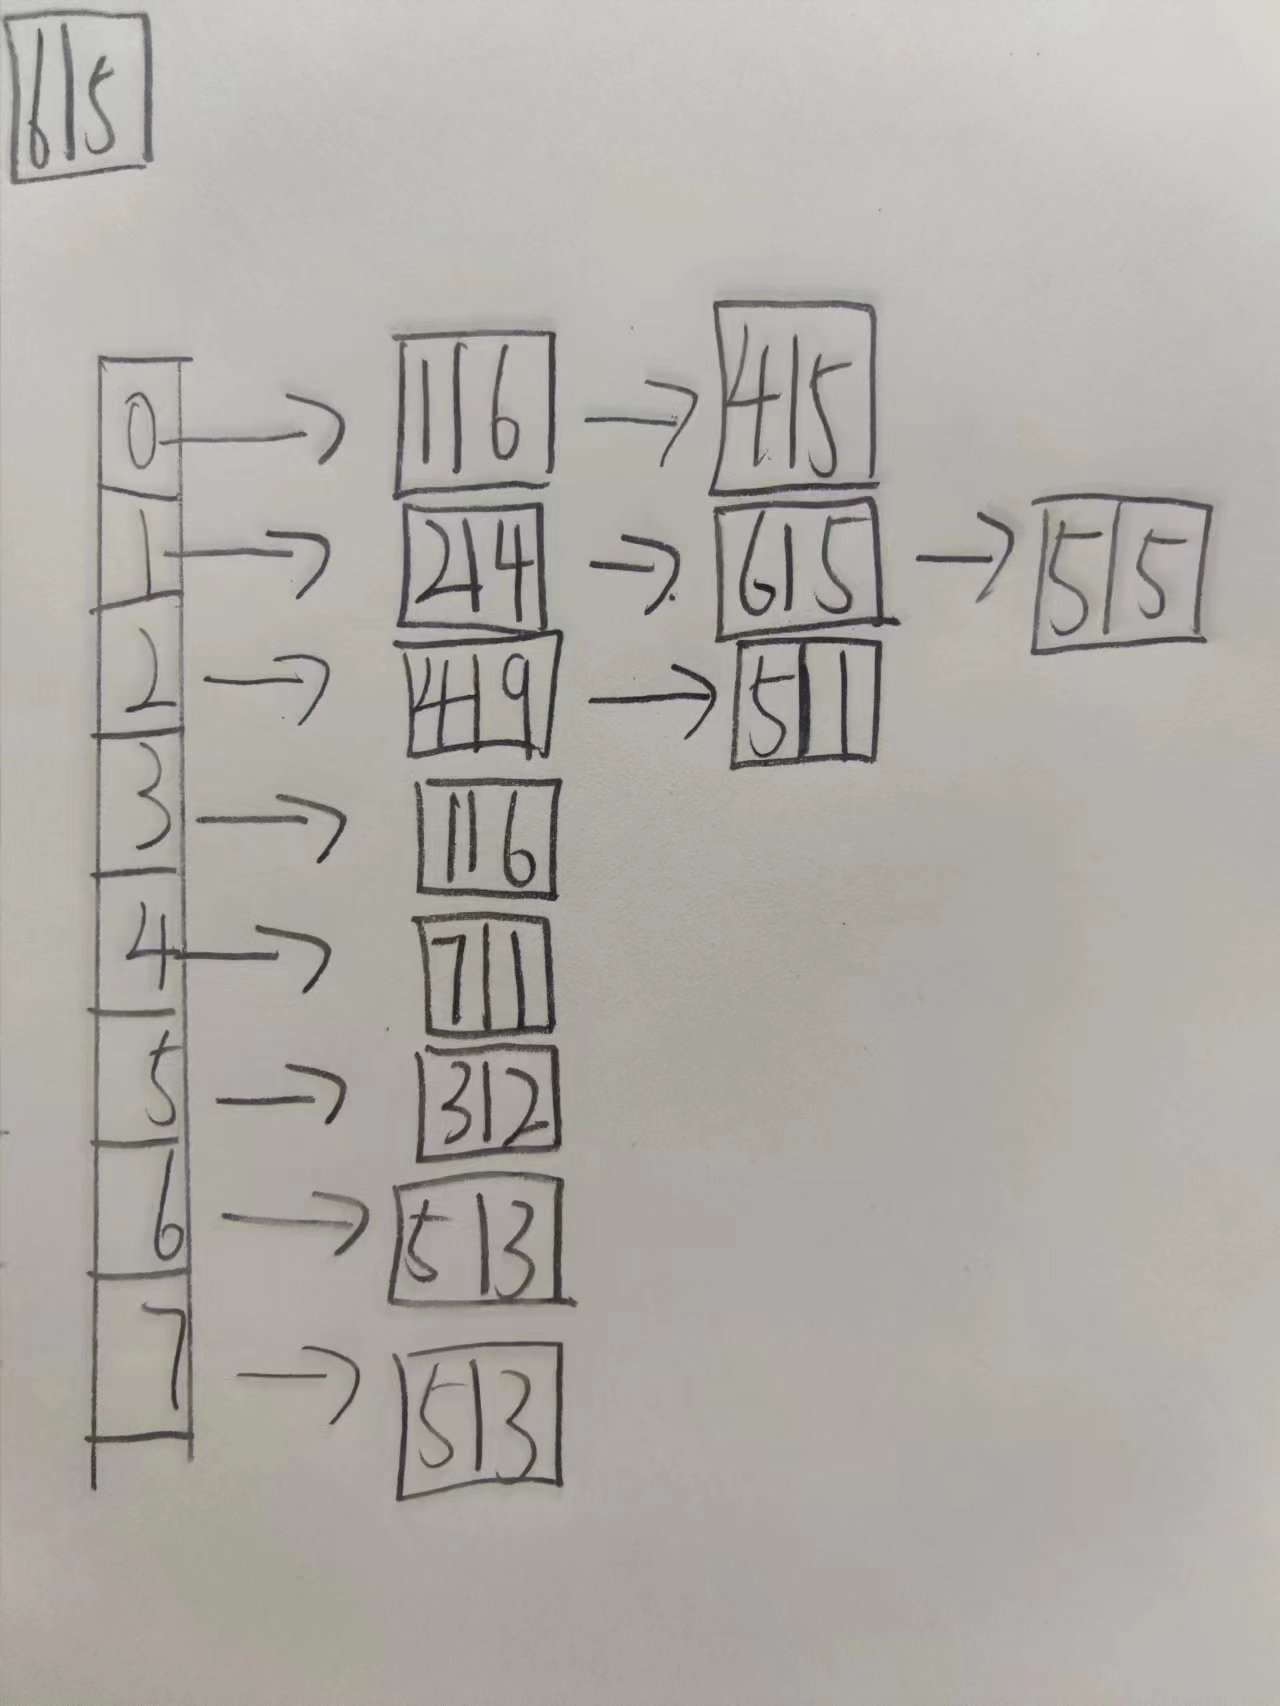 6|5
0 → 1|6 → 4|5
1 → 2|4 → 6|5 → 5|5
2 → 4|9 → 5|1
3 → 1|6
4 → 7|1
5 → 3|2
6 → 5|3
7 → 5|3